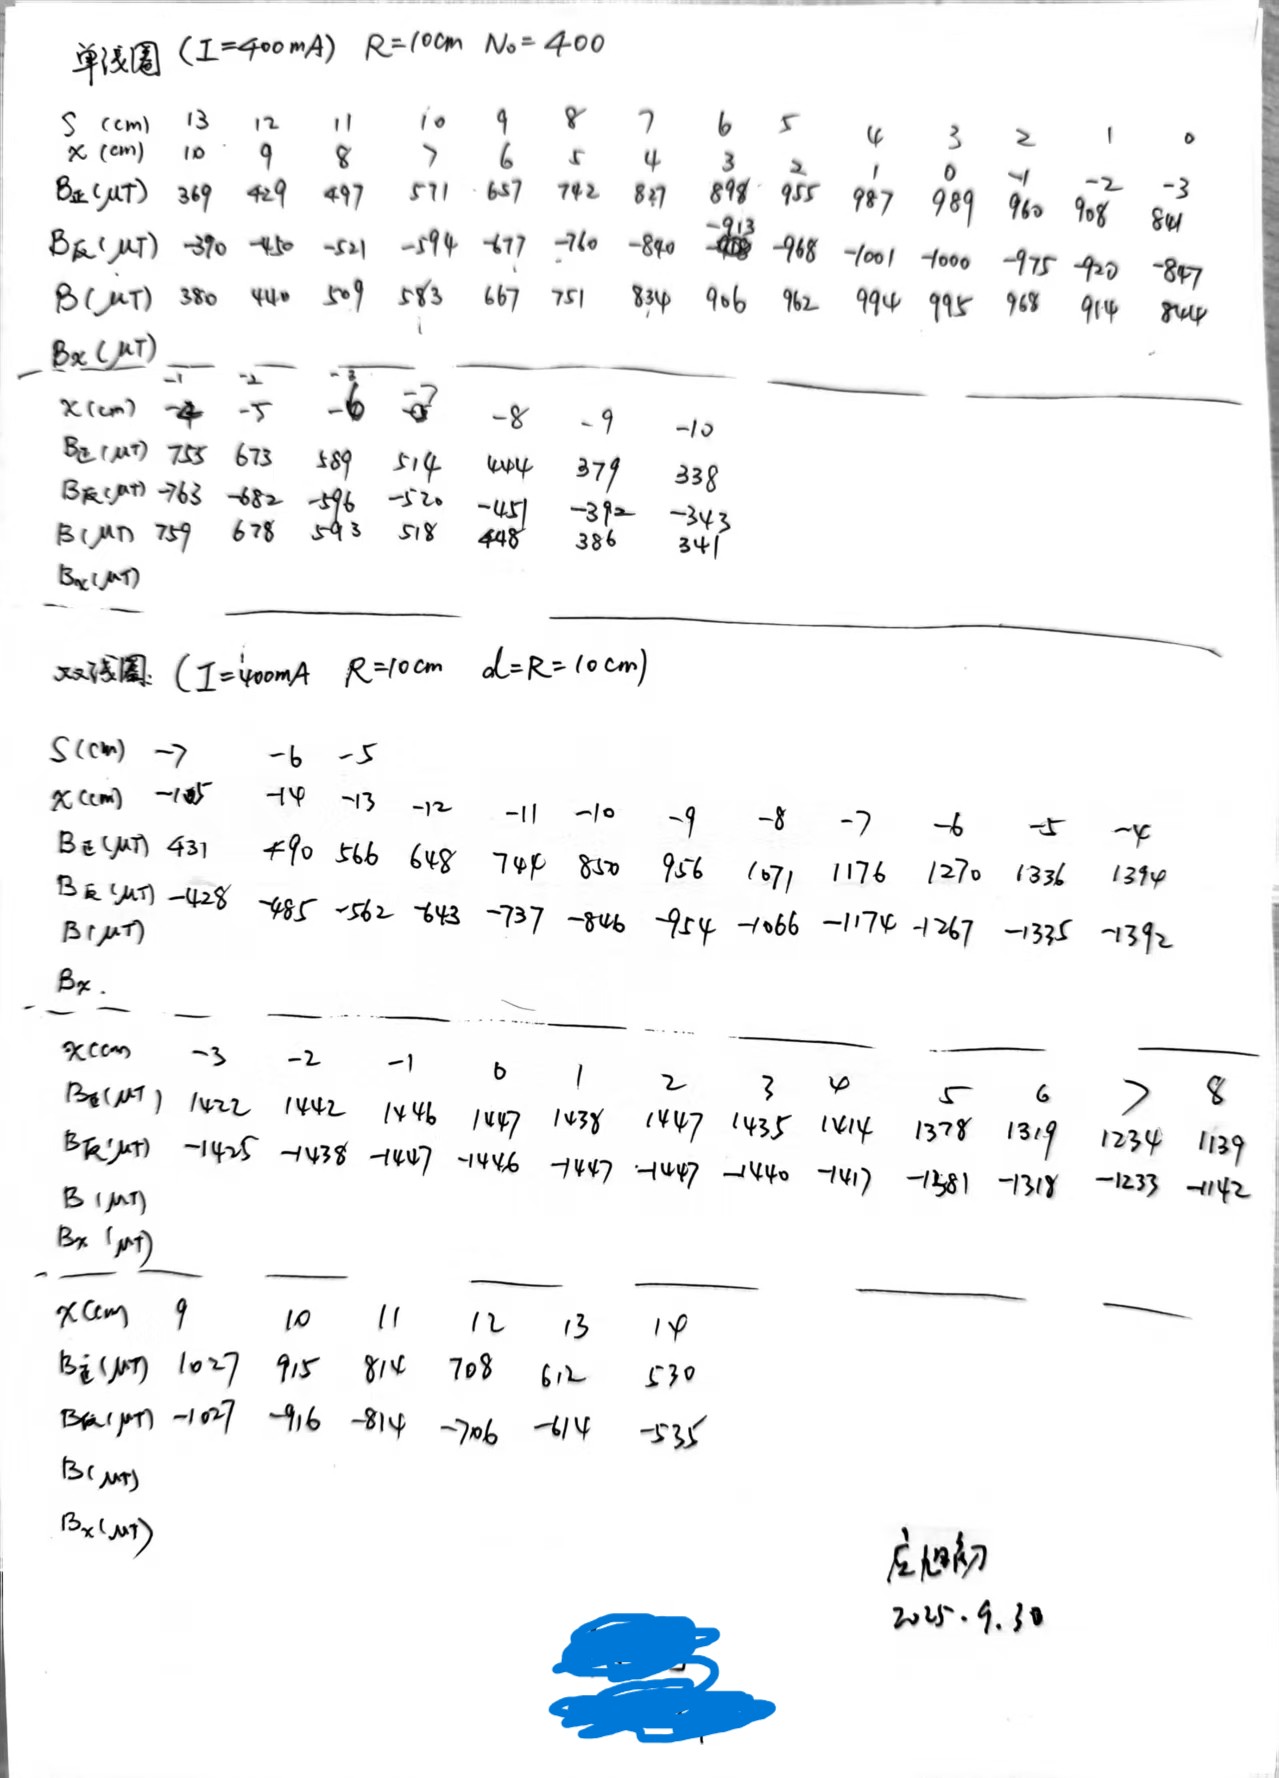 单线圈 (I=400mA) R=10cm N₀=400
S (cm) 13 12 11 10 9 8 7 6 5 4 3 2 1 0
x (cm) 10 9 8 7 6 5 4 3 2 1 0 -1 -2 -3
B正(μT) 369 429 497 571 657 742 827 898 955 987 989 960 908 841
B反(μT) -390 -450 -521 -594 -677 -760 -840 -913 -968 -1001 -1000 -975 -920 -847
B(μT) 380 440 509 583 667 751 834 906 962 994 995 968 914 844
Bx(μT)
-1 -2 -3
x(cm) -4 -5 -6 -7 -8 -9 -10
B正(μT) 755 673 589 514 444 379 338
B反(μT) -763 -682 -596 -520 -451 -392 -343
B(μT) 759 678 593 518 448 386 341
Bx(μT)
双线圈: (I=400mA R=10cm d=R=10cm)
S(cm) -7 -6 -5
x(cm) -15 -14 -13 -12 -11 -10 -9 -8 -7 -6 -5 -4
B正(μT) 431 490 566 648 744 850 956 1071 1176 1270 1336 1394
B反(μT) -428 -485 -562 -643 -737 -846 -954 -1066 -1174 -1267 -1335 -1392
B(μT)
Bx.
x(cm) -3 -2 -1 0 1 2 3 4 5 6 7 8
B正(μT) 1422 1442 1446 1447 1438 1447 1435 1414 1378 1319 1234 1139
B反(μT) -1425 -1438 -1447 -1446 -1447 -1447 -1440 -1417 -1381 -1318 -1233 -1142
B(μT)
Bx(μT)
x(cm) 9 10 11 12 13 14
B正(μT) 1027 915 814 708 612 530
B反(μT) -1027 -916 -814 -706 -614 -535
B(μT)
Bx(μT)
2025.9.30